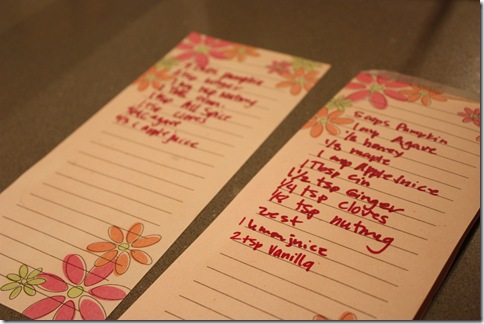 pumpkin
nutmeg
All Spice
agave
apple juice
5 cups Pumpkin
1 cup Agave
honey
1/3 maple
1 cup Apple Juice
1 Tbsp Cin
1/2 tsp Ginger
1/4 tsp cloves
1/2 tsp nutmeg
zest
1 lemon juice
2 tsp Vanilla